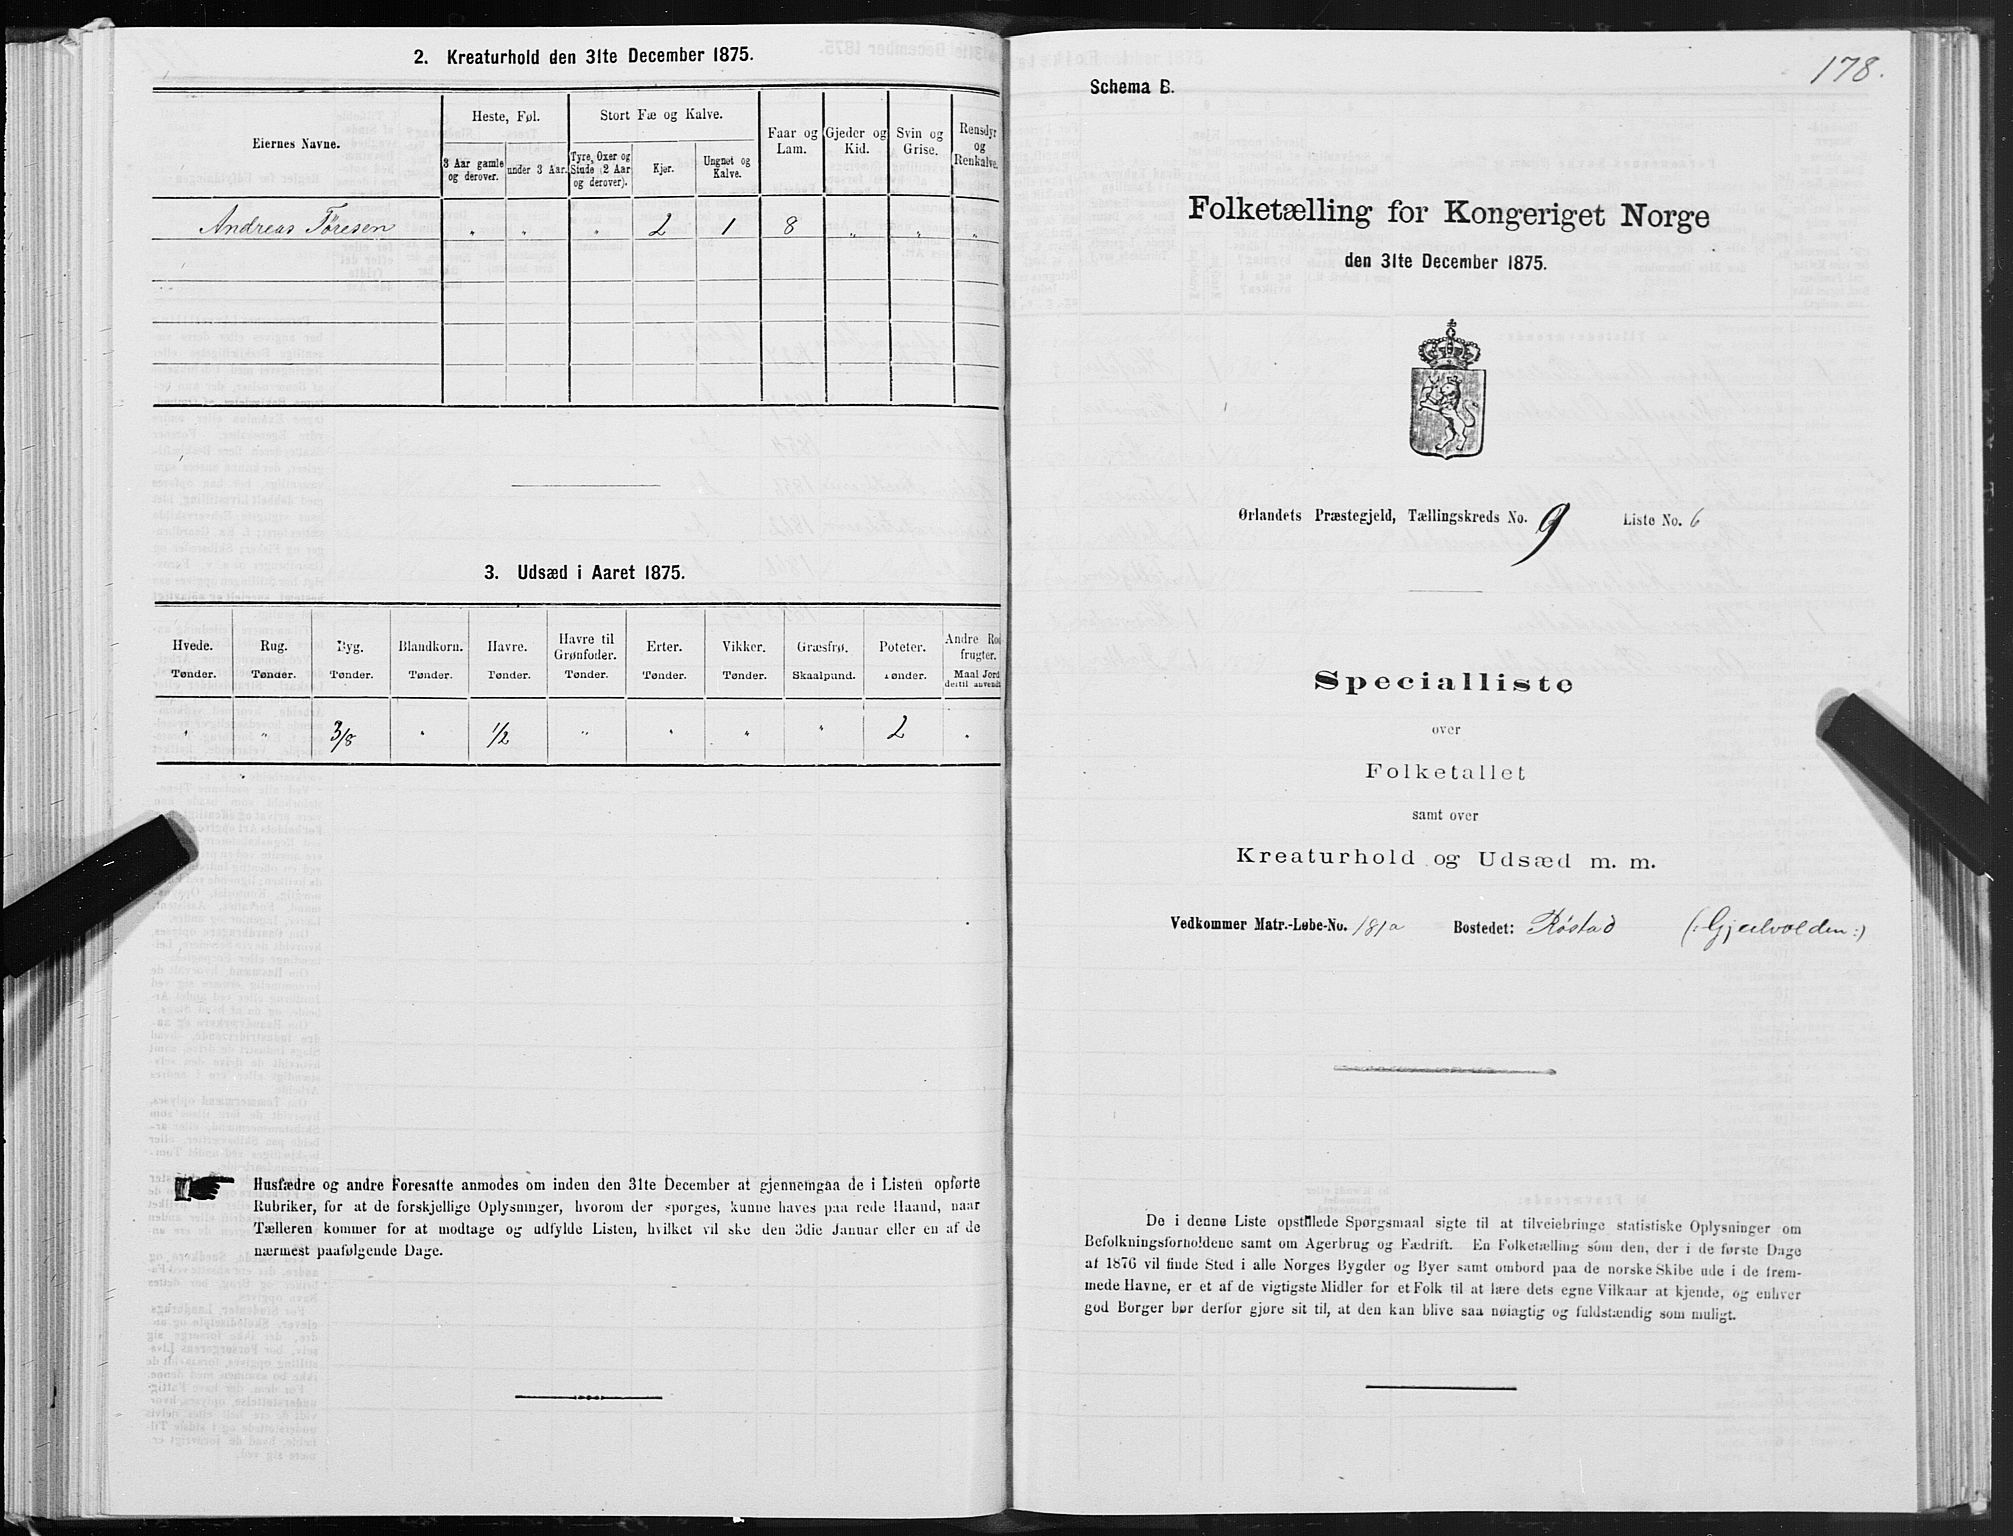 2. Kreaturhold den 31te December 1875.
Eiernes Navne.
Heste, Føl.
Stort Fæ og Kalve.
Faar og Lam.
Gjeder og Kid.
Svin og Grise.
Rensdyr og Renkalve.
3 Aar gamle og derover.
under 3 Aar.
Tyre, Oxer og Stude (2 Aar og derover).
Kjør.
Ungnøt og Kalve.
Andreas Tøresen " " " 2 1 8 " " "
3. Udsæd i Aaret 1875.
Hvede. Rug. Byg. Blandkorn. Havre. Havre til Grønfoder. Erter. Vikker. Græsfrø. Poteter. Andre Rodfrugter.
Tønder. Tønder. Tønder. Tønder. Tønder. Tønder. Tønder. Tønder. Skaalpund. Tønder. Maal Jord dertil anvendt
" " 3/8 " 1/2 " " " " 2 "
Husfædre og andre Foresatte anmodes om inden den 31te December at gjennemgaa de i Listen opførte
Rubriker, for at de forskjellige Oplysninger, hvorom der spørges, kunne haves paa rede Haand, naar
Tælleren kommer for at modtage og udfylde Listen, hvilket vil ske den 3die Januar eller en af de
nærmest paafølgende Dage.
178.
Schema B.
Folketælling for Kongeriget Norge
den 31te December 1875.
Ørlandets Præstegjeld, Tællingskreds No. 9 Liste No. 6
Specialliste
over
Folketallet
samt over
Kreaturhold og Udsæd m. m.
Vedkommer Matr.-Løbe-No. 181a Bostedet: Røstad (: Gjeilvolden :)
De i denne Liste opstillede Spørgsmaal sigte til at tilveiebringe statistiske Oplysninger om
Befolkningsforholdene samt om Agerbrug og Fædrift. En Folketælling som den, der i de første Dage
af 1876 vil finde Sted i alle Norges Bygder og Byer samt ombord paa de norske Skibe ude i de frem-
mede Havne, er et af de vigtigste Midler for et Folk til at lære dets egne Vilkaar at kjende, og enhver
god Borger bør derfor gjøre sit til, at den kan blive saa nøiagtig og fuldstændig som muligt.